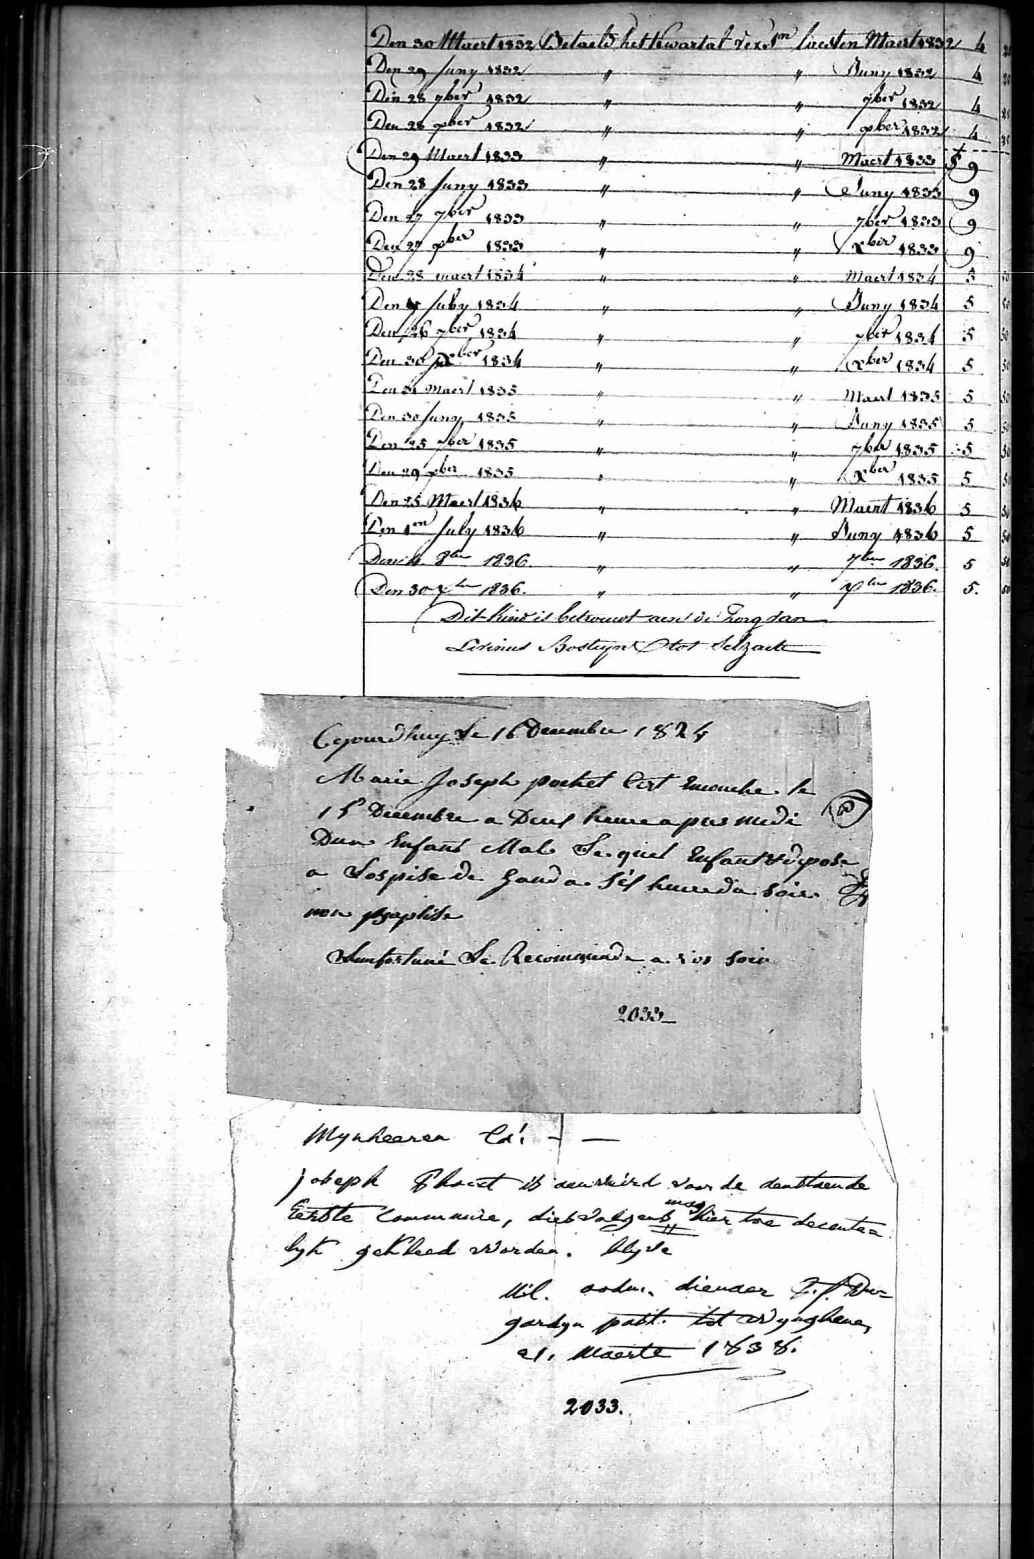 Den 30 Maert 1832 Betaeld het kwartal vex. 1en laesten Maert 1832 4
Den 29 Juny 1832 " " Juny 1832 4
Den 28 7ber 1832 " " 7ber 1832 4
Den 28 xber 1832 " " xber 1832 4
Den 29 Maert 1833 " " Maert 1833 9
Den 28 Juny 1833 " " Juny 1833 9
Den 27 7ber 1833 " " 7ber 1833 9
Den 27 xber 1833 " " xber 1833 9
Den 28 maert 1834 " " Maert 1834 5
Den July 1834 " " Juny 1834 5
Den 26 7ber 1834 " " 7ber 1834 5
Den 30 xber 1834 " " xber 1834 5
Den 31 Maert 1835 " " Maert 1835 5
Den 30 Juny 1835 " " Juny 1835 5
Den 25 7ber 1835 " " 7ber 1835 5
Den 29 xber 1835 " " xber 1835 5
Den 25 Maert 1836 " " Maert 1836 5
Den 1en July 1836 " " Juny 1836 5
Den 4 8ber 1836. " " 7ber 1836. 5
Den 30 xber 1836. " " xber 1836. 5.
Dit kind is betrouwt aen de Zorg van
Livinus Bosteyn tot Selzaete
Cejourdhuy Le 16 Decembre 1824
Marie Joseph pochet Cest Encouche le
15 Decembre a Deux heure apres midi
Dun Enfant Male Le quel Enfant et depose
a Lospise de Gand a Sis heure du soir
non Baptise
Lunfortuné Se Recommande a vos soin
2033
Mynheeren Co:
Joseph Phocet is aenveird voor de aenstaende
Eerste Communie, diesvolgens mag hier toe decente=
lyk gekleed worden. blyve
UE. ootm. dienaer F. J. Du=
gardyn past. tot Wynghene,
21. Maerte 1838.
2033.